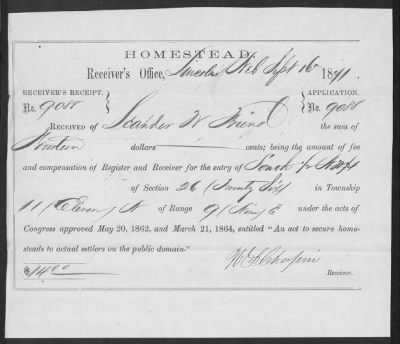 HOMESTEAD.
Receiver's Office, Lincoln Neb Sept 16 1871.
RECEIVER'S RECEIPT, } { APPLICATION,
No. 9088 No. 9088
RECEIVED OF Leander W Friend the sum of
Fourteen dollars cents; being the amount of fee
and compensation of Register and Receiver for the entry of South
of Section 26 (Twenty Six) in Township
11 (Eleven) N of Range 9 (Nine) E under the acts of
Congress approved May 20, 1862, and March 21, 1864, entitled "An act to secure home-
steads to actual settlers on the public domain."
$14.00
Receiver.